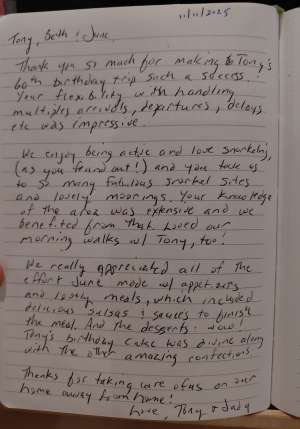 11/11/2025
Tony, Beth & June,
Thank you so much for making Tony's
60th birthday trip such a success.
Your flexibility with handling
multiples arrivals, departures, delays
etc was impressive.
We enjoy being active and love snorkeling,
(as you found out!) and you took us
to so many fabulous snorkel sites
and lovely moorings. Your knowledge
of the area was extensive and we
benefited from that. Loved our
morning walks w/ Tony, too!
We really appreciated all of the
effort June made w/ appetizers
and tasty meals, which included
delicious salsas & sauces to finish
the meal. And the desserts! Wow!
Tony's birthday cake was divine along
with the other amazing confections.
Thanks for taking care of us on our
home away from home!
Love, Tony &